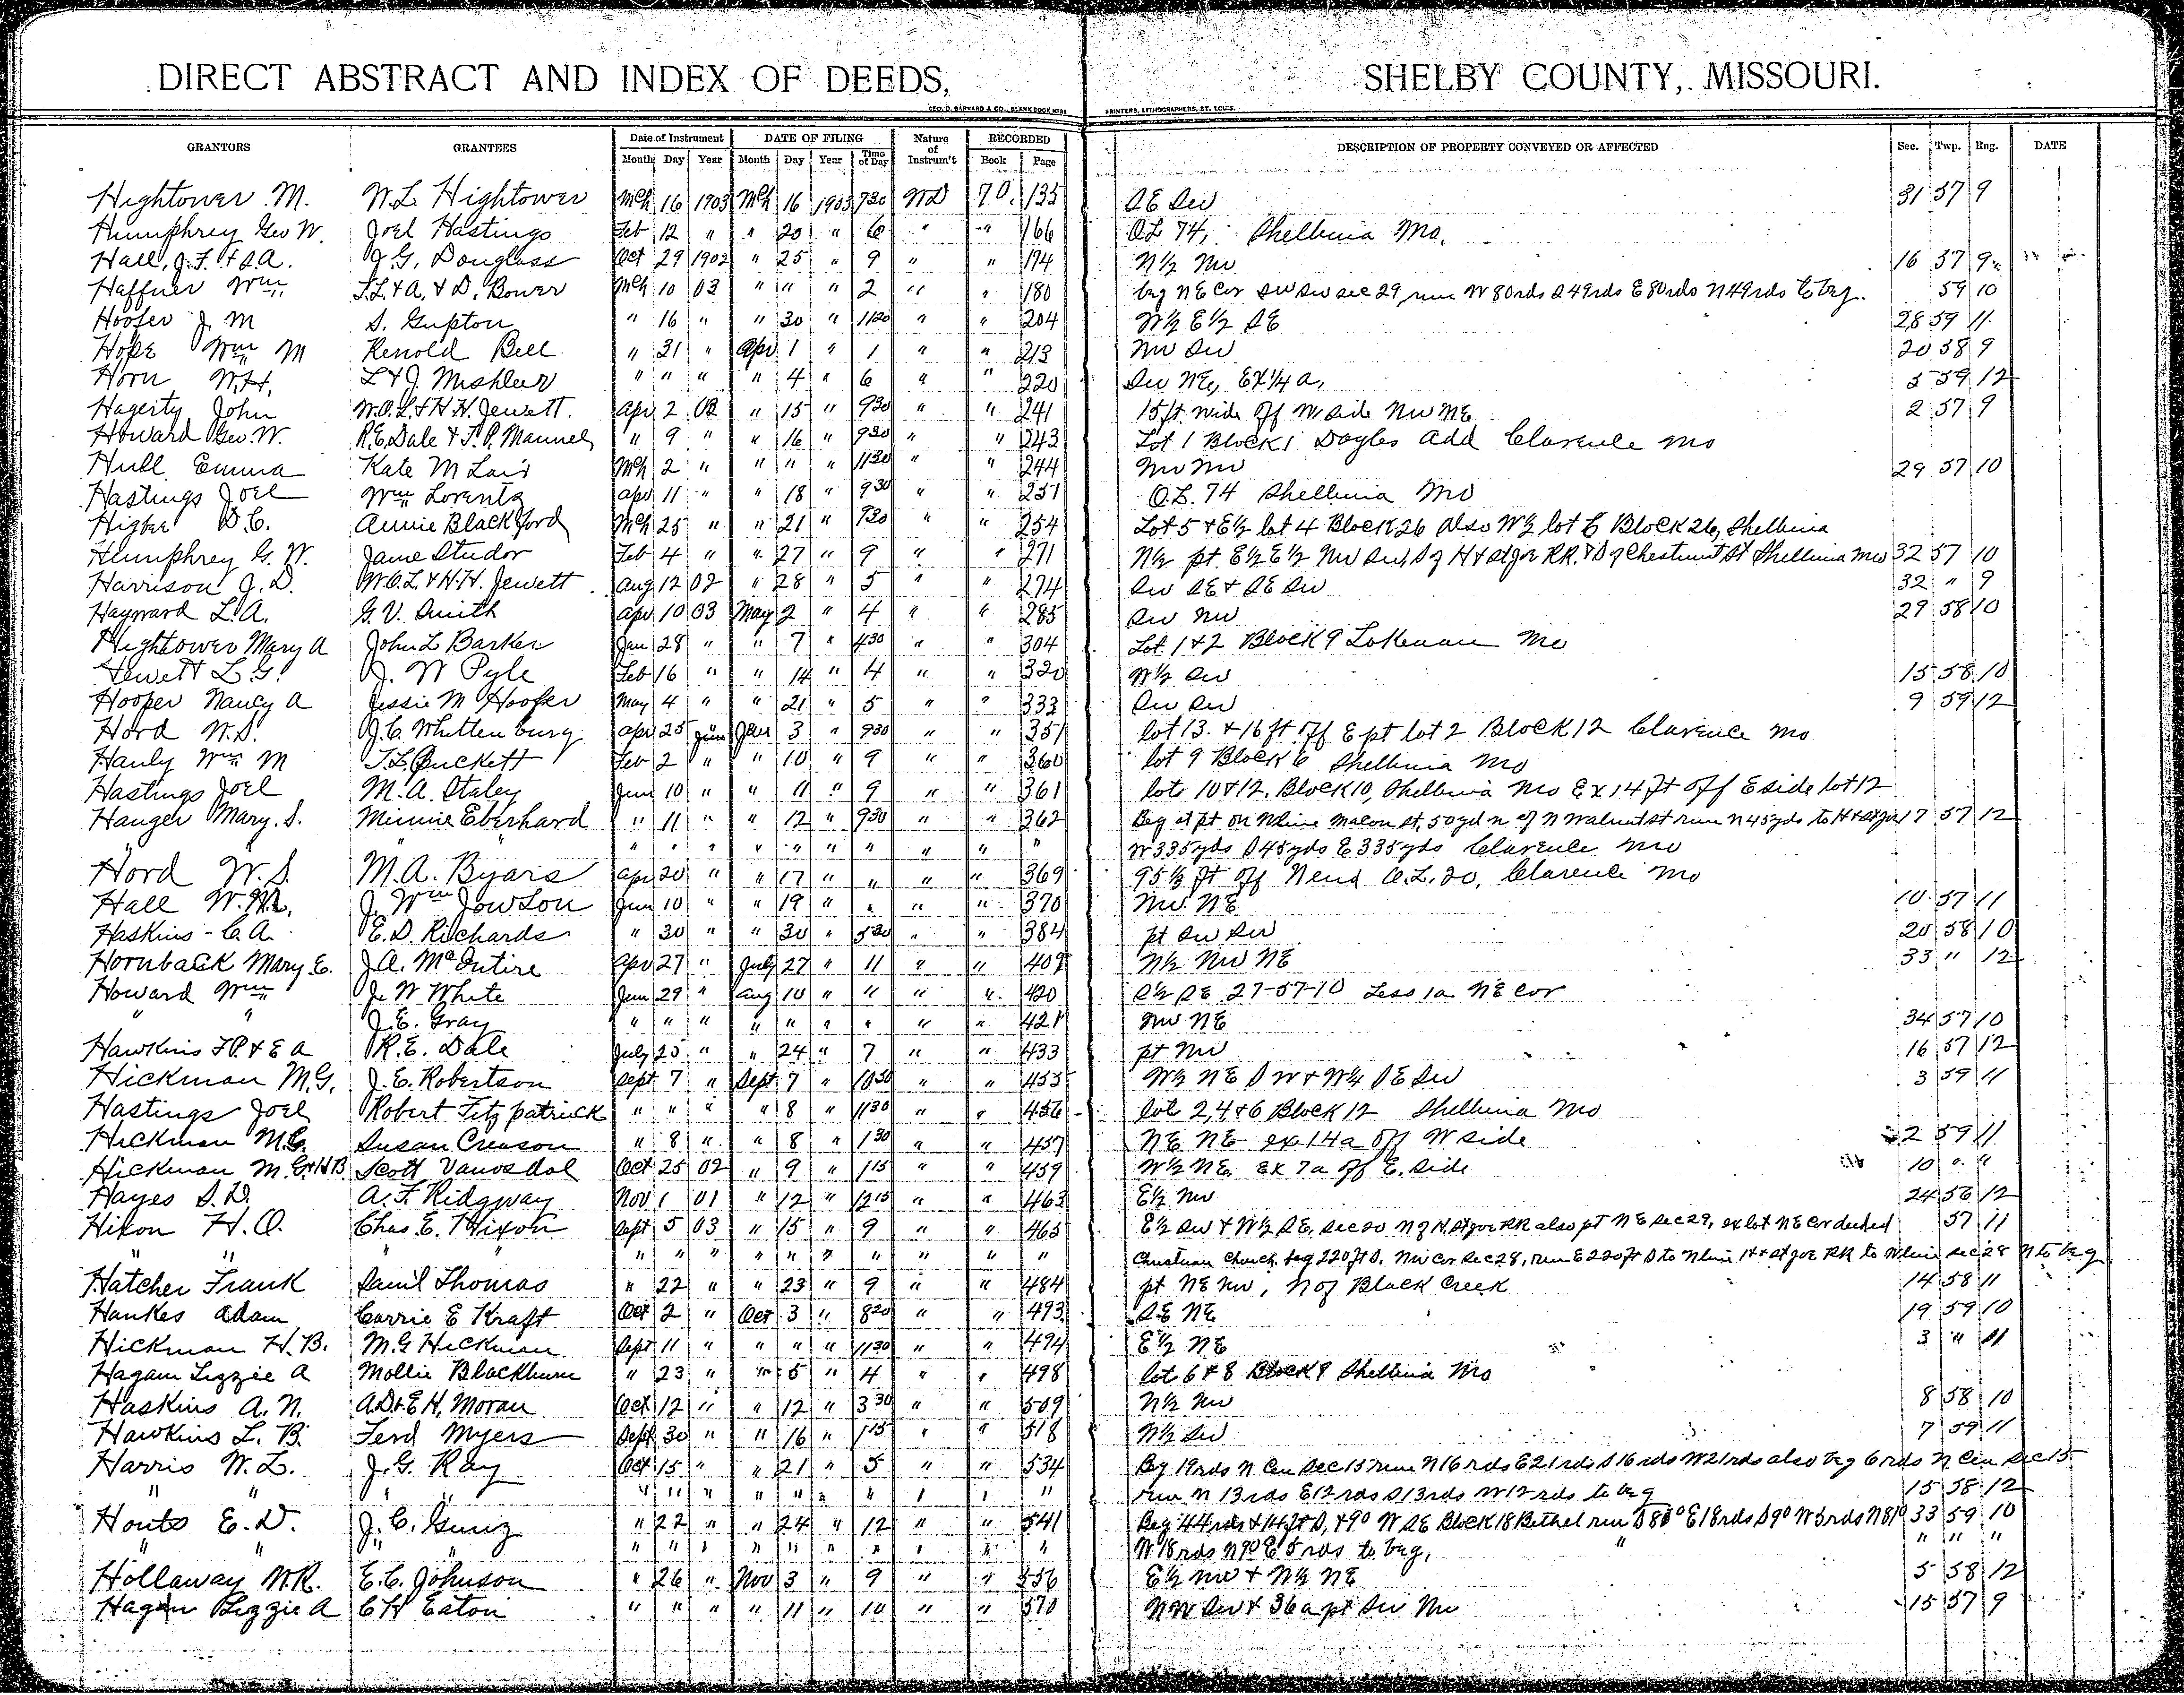 DIRECT ABSTRACT AND INDEX OF DEEDS, SHELBY COUNTY, MISSOURI.
GEO. D. BARNARD & CO., BLANK BOOK MFRS PRINTERS, LITHOGRAPHERS, ST. LOUIS.
GRANTORS GRANTEES Date of Instrument DATE OF FILING Nature of Instrum't RECORDED DESCRIPTION OF PROPERTY CONVEYED OR AFFECTED Sec. Twp. Rng. DATE
Month Day Year Month Day Year Time of Day Book Page
Hightower M. W.L. Hightower Mch 16 1903 Mch 16 1903 730 WD 70. 135 SE SW 31 57 9
Humphrey Geo W. Joel Hastings Feb 12 " " 20 " 6 " " 166 OL 74, Shelbina Mo.
Hall, J.F. & S.A. J.G. Douglass Oct 29 1902 " 25 " 9 " " 174 N½ NW 16 57 9
Haffner Wm T.L. & A, & D. Bower Mch 10 03 " " " 2 " " 180 beg NE Cor SW SW sec 29, run W 80rds S 49rds E 80rds N 49rds to beg. 59 10
Hoofer J. M S. Gupton " 16 " " 30 " 1120 " " 204 W½ E½ SE 28 59 11
Hope Wm M Renold Bell " 31 " Apr 1 " 1 " " 213 NW SW 20 58 9
Horn W.H. L & J. Mishler " " " " 4 " 6 " " 220 SW NE, Ex ¼ a, 3 59 12
Hagerty John W.O.L. & H.H. Jewett. Apr 2 03 " 15 " 930 " " 241 15 ft. wide off W side NW NE 2 57 9
Howard Geo. W. R.E. Dale & T.P. Mannel " 9 " " 16 " 930 " " 243 Lot 1 Block 1 Doyles add Clarence Mo
Hull Emma Kate M Lair Mch 2 " " " " 1130 " " 244 NW NW 29 57 10
Hastings Joel Wm Lorentz apr 11 " " 18 " 930 " " 251 O.L. 74 Shelbina Mo
Higbee D.C. Annie Blackford Mch 25 " " 21 " 730 " " 254 Lot 5 & E½ lot 4 Block 26 also W½ lot 6 Block 26, Shelbina
Humphrey G. W. Jame Studor Feb 4 " " 27 " 9 " " 271 N½ pt. E½ E½ NW SW, S of H & St Joe RR. & S of Chestnut St Shelbina Mo 32 57 10
Harrison J.D. W.O.L. & H.H. Jewett Aug 12 02 " 28 " 5 " " 274 SW SE & SE SW 32 " 9
Hayward L.A. G.V. Smith Apr 10 03 May 2 " 4 " " 285 SW NW 29 58 10
Hightower Mary A John L Barker Jan 28 " " 7 " 430 " " 304 Lot 1 & 2 Block 9 Lakenan Mo
Hewett L.G. J. W Pyle Feb 16 " " 14 " 4 " " 320 W½ SW 15 58 10
Hooper Nancy A Jessie M Hoofer May 4 " " 21 " 5 " " 333 SW SW 9 59 12
Hord W.S. J.C. Whittenburg apr 25 Jun 3 " 930 " " 351 lot 13. & 16 ft. off E pt lot 2 Block 12 Clarence Mo
Hanly Wm M T.L. Puckett Feb 2 " " 10 " 9 " " 360 lot 9 Block 6 Shelbina Mo
Hastings Joel M.A. Staley Jun 10 " " 11 " 9 " " 361 lots 10 & 12, Block 10, Shelbina Mo Ex 14 ft off E side lot 12
Hanger Mary. S. Minnie Eberhard " 11 " " 12 " 930 " " 362 Beg at pt on W line Macon St, 50 yd n of N Walnut st run N 45 yds to H & St Joe 17 57 12
" " " " " " " " " " " " W 335 yds S 45 yds E 335 yds Clarence Mo
Hord W.S. M.A. Byars Apr 20 " " 17 " " " " 369 95⅓ ft off N end O.L. 20, Clarence Mo
Hall W.M. J. Wm Jowson Jun 10 " " 19 " " " " 370 NW NE 10 57 11
Haskins C.A. E.D. Richards " 30 " " 30 " 530 " " 384 pt SW SW 20 58 10
Hornback Mary E. J.A. McIntire Apr 27 " July 27 " 11 " " 409 N½ NW NE 33 " 12
Howard Wm J. W White Jun 29 " Aug 10 " " " " 420 S½ SE 27-57-10 Less 1a NE cor
" " J.E. Gray " " " " " " " " " 421 NW NE 34 57 10
Hawkins F.P. & E A R.E. Dale July 25 " " 24 " 7 " " 433 pt NW 16 57 12
Hickman M.G. J.E. Robertson Sept 7 " Sept 7 " 1030 " " 455 W½ NE SW & W½ SE SW 3 59 11
Hastings Joel Robert Fitzpatrick " " " " 8 " 1130 " " 456 lots 2, 4 & 6 Block 12 Shelbina Mo
Hickman M.G. Susan Creason " 8 " " 8 " 130 " " 457 NE NE ex 14a off W side 2 59 11
Hickman M.G. & H.B. Scott Vanosdol Oct 25 02 " 9 " 115 " " 459 W½ NE ex 7a off E. side 10 " "
Hayes S.D. A.F. Ridgway Nov 1 01 " 12 " 1215 " " 463 E½ NW 24 56 12
Hixon H.O. Chas. E. Hixon Sept 5 03 " 15 " 9 " " 465 E½ SW & W½ SE, sec 20 N of H. St Joe RR also pt NE sec 29, ex lot NE Cor deeded 57 11
" " " " " " " " " " " " " Christian Church, beg 220 ft S. NW Cor Sec 28, run E 220 ft S to N line H & St Joe RR to W line sec 28 N to beg
Hatcher Frank Danil Thomas " 22 " " 23 " 9 " " 484 pt NE NW, N of Black Creek 14 58 11
Hankes Adam Carrie E Kraft Oct 2 " Oct 3 " 820 " " 493 SE NE 19 59 10
Hickman H.B. M.G Hickman Sept 11 " " " " 1130 " " 494 E½ NE 3 " 11
Hagan Lizzie A Mollie Blackburn " 23 " " 5 " 4 " " 498 lots 6 & 8 Block 9 Shelbina Mo
Haskins A.N. A.D. & E.H. Moran Oct 12 " " 12 " 330 " " 509 N½ NW 8 58 10
Hawkins L.B. Ferd Myers Sept 30 " " 16 " 115 " " 518 N½ SW 7 59 11
Harris W.L. J.G. Ray Oct 15 " " 21 " 5 " " 534 Beg 19 rds N Cen Sec 15 run N 16 rds E 21 rds S 16 rds W 21 rds also beg 6 rds N Cen Sec 15
" " " " " " " " " " " " " " run N 13 rds E 12 rds S 13 rds W 12 rds to beg 15 58 12
Houts E.D. J.C. Gunz " 22 " " 24 " 12 " " 541 Beg 44 rds & 14 ft S, & 9° W SE Block 18 Bethel run S 81° E 18 rds S 9° W 5 rds N 81° 33 59 10
" " " " " " " " " " " " " " W 18 rds N 9° E 5 rds to beg, " " " "
Hollaway W.R. E.C. Johnson " 26 " Nov 3 " 9 " " 556 E½ NW & N½ NE 5 58 12
Hagan Lizzie A C H Eaton " " " " 11 " 10 " " 570 NW SW & 36a pt SW NW 15 57 9